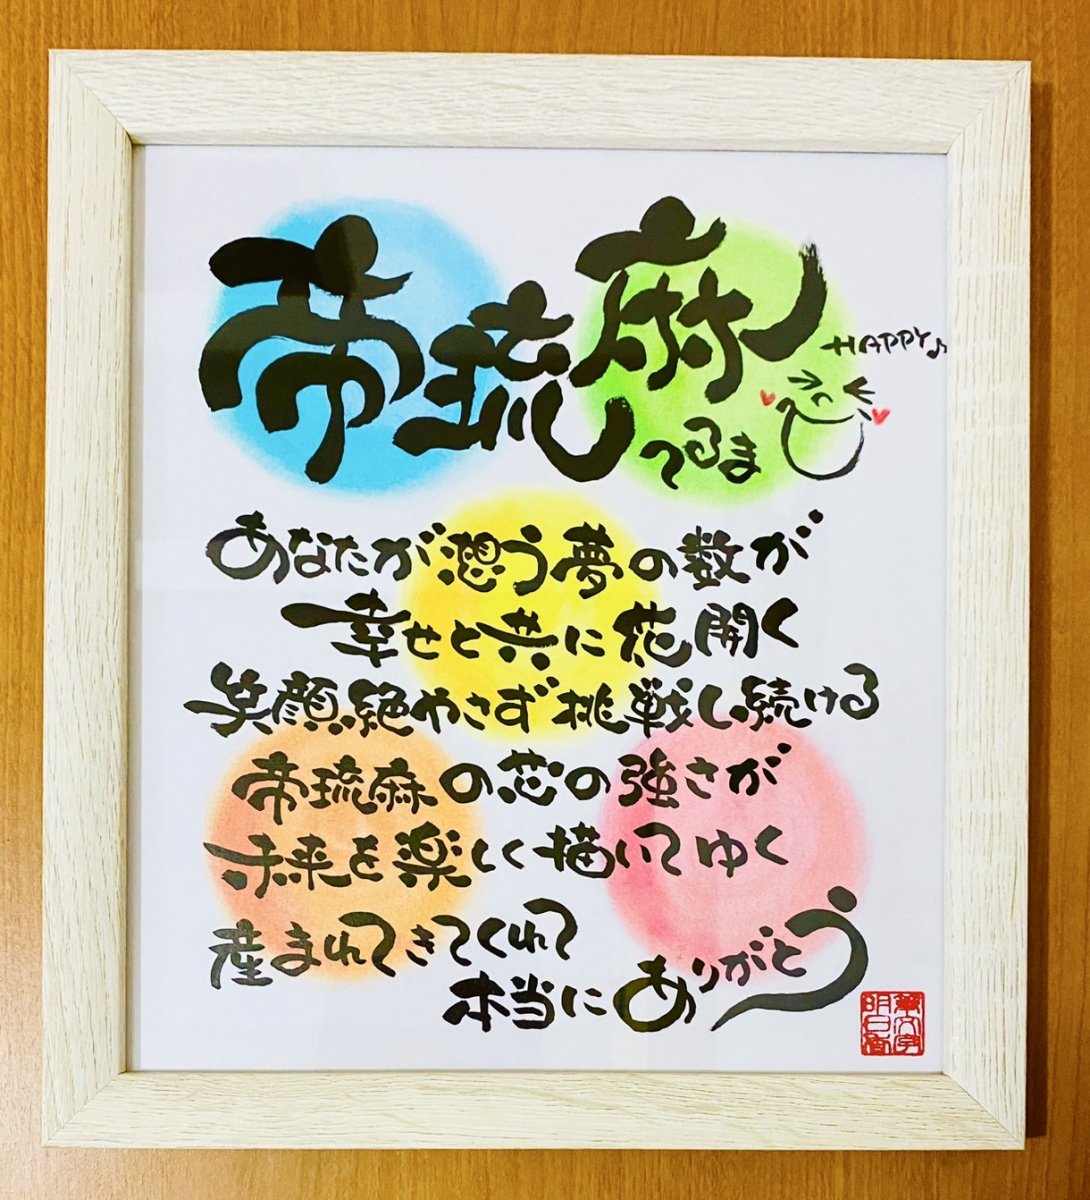 帝琉麻
てるま
HAPPY♪
あなたが想う夢の数が
幸せと共に花開く
笑顔絶やさず挑戦し続ける
帝琉麻の芯の強さが
未来を楽しく描いてゆく
産まれてきてくれて
本当にありがとう